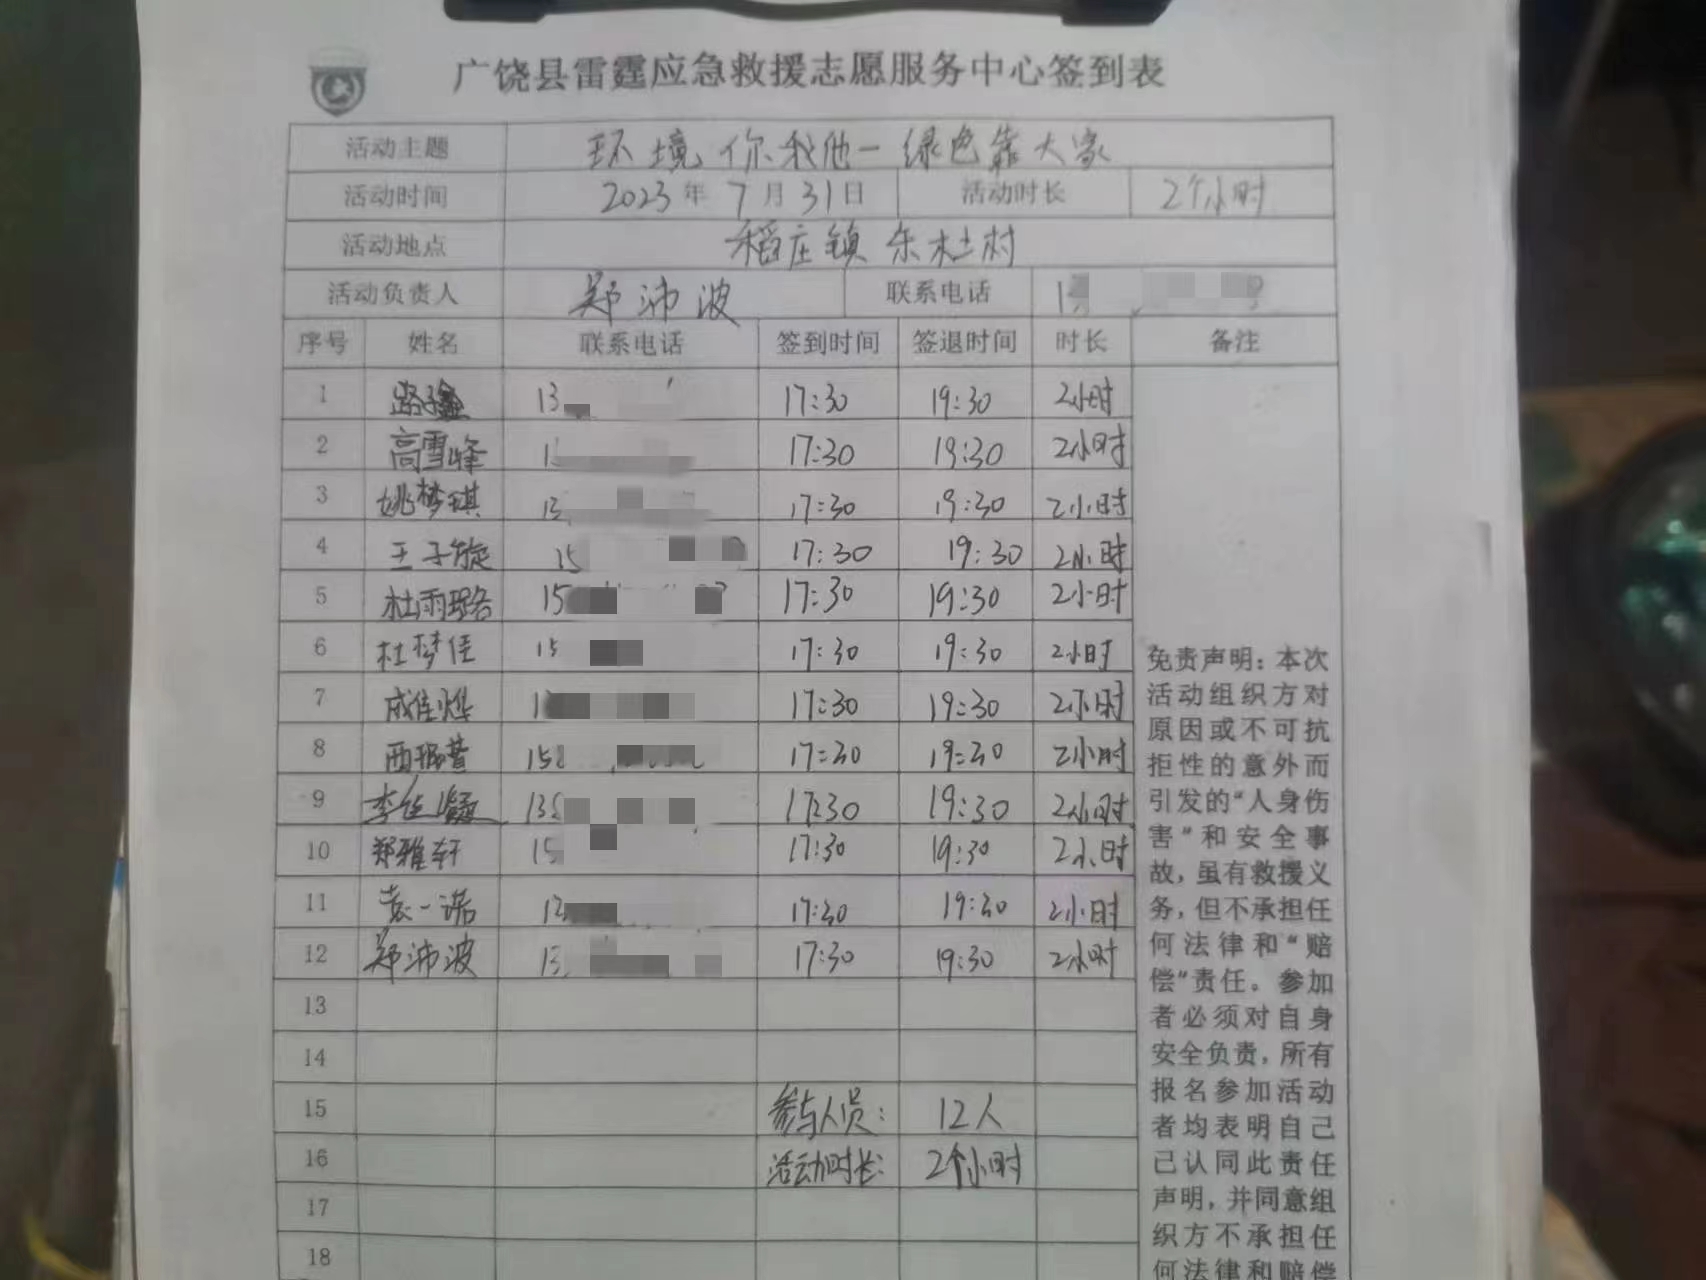 广饶县雷霆应急救援志愿服务中心签到表
活动主题 环境你我他一绿色靠大家
活动时间 2023年7月31日 活动时长 2个小时
活动地点 稻庄镇东杜村
活动负责人 郑沛波 联系电话 1
序号 姓名 联系电话 签到时间 签退时间 时长 备注
1 路 13 17:30 19:30 2小时
2 高雪峰 1 17:30 19:30 2小时
3 姚梦琪 13 17:30 19:30 2小时
4 王子旋 15 17:30 19:30 2小时
5 杜雨璐 15 17:30 19:30 2小时
6 杜梦佳 15 17:30 19:30 2小时
7 成佳烨 1 17:30 19:30 2小时
8 西 158 17:30 19:30 2小时
9 李佳凝 138 17:30 19:30 2小时
10 郑雅轩 15 17:30 19:30 2小时
11 袁一诺 13 17:30 19:30 2小时
12 郑沛波 13 17:30 19:30 2小时
13
14
15 参与人员: 12人
16 活动时长: 2个小时
17
18
免责声明:本次
活动组织方对
原因或不可抗
拒性的意外而
引发的“人身伤
害”和安全事
故,虽有救援义
务,但不承担任
何法律和“赔
偿”责任。参加
者必须对自身
安全负责,所有
报名参加活动
者均表明自己
已认同此责任
声明,并同意组
织方不承担任
何法律和赔偿